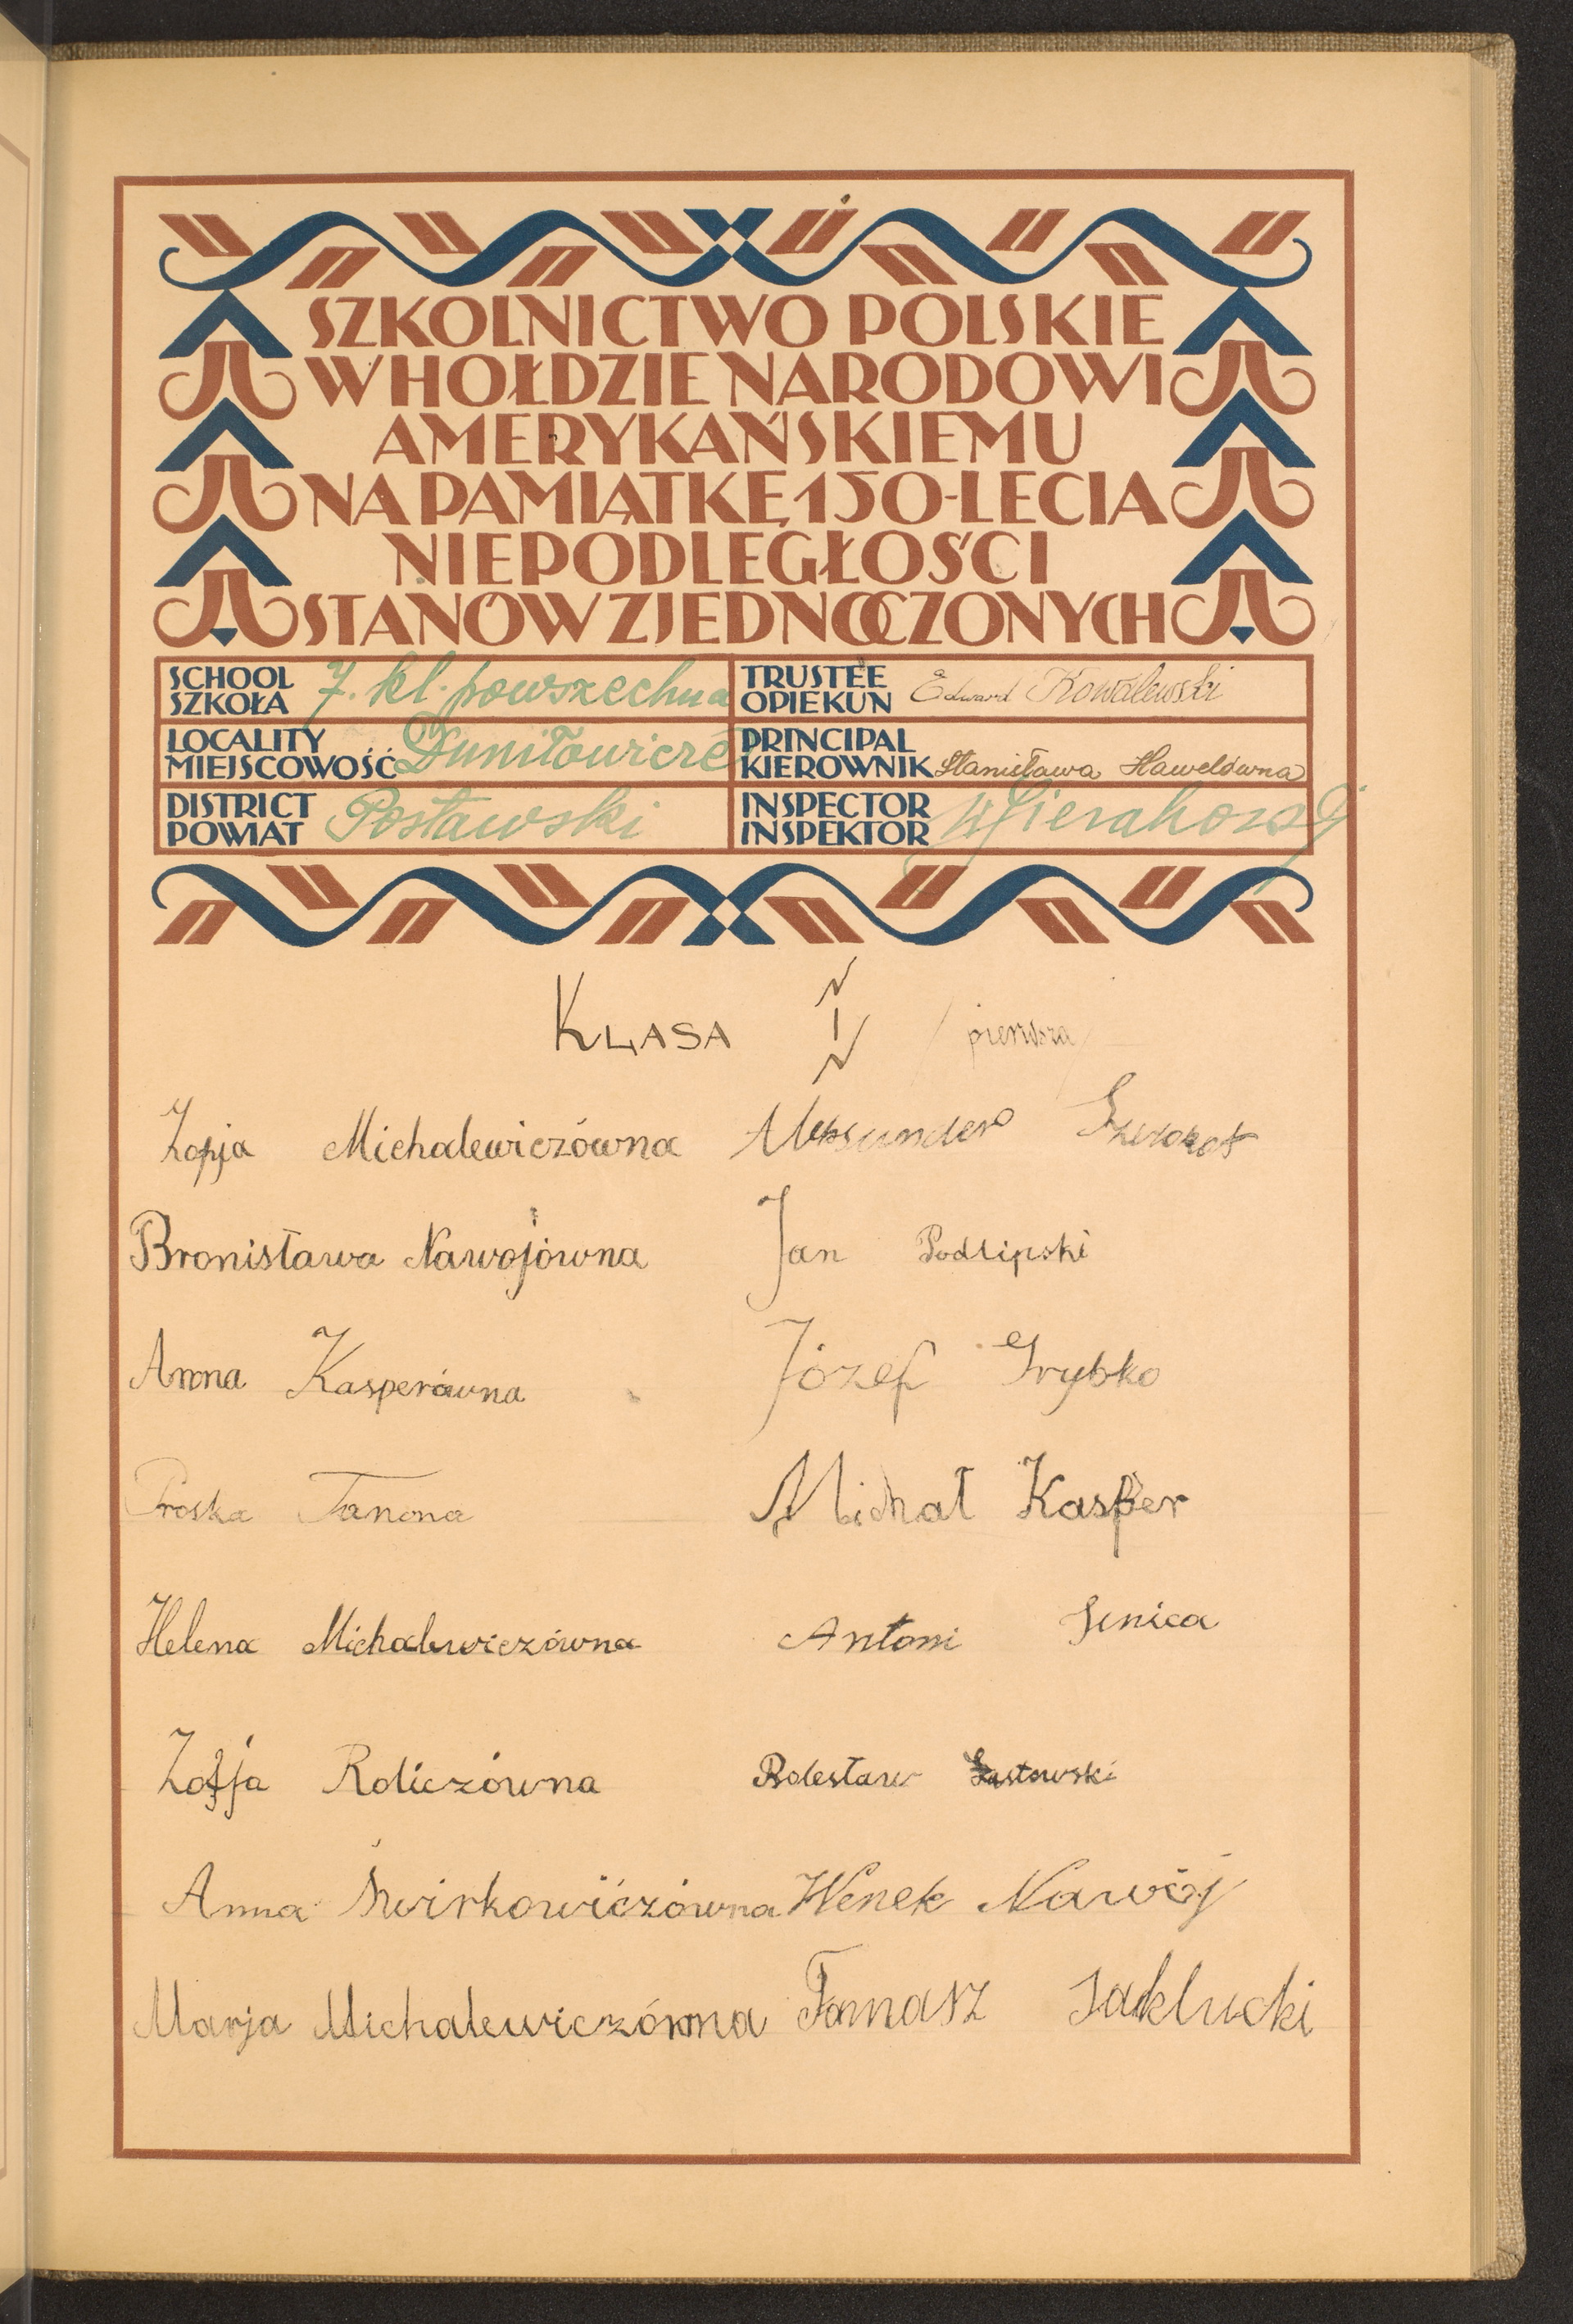 SZKOLNICTWO POLSKIE
W HOŁDZIE NARODOWI
AMERYKAŃSKIEMU
NA PAMIĄTKĘ 150-LECIA
NIEPODLEGŁOŚCI
STANÓW ZJEDNOCZONYCH
SCHOOL SZKOŁA 7. kl. powszechna TRUSTEE OPIEKUN Edward Kowalewski
LOCALITY MIEJSCOWOŚĆ Duniłowicze PRINCIPAL KIEROWNIK Stanisława Hawelówna
DISTRICT POWIAT Postawski INSPECTOR INSPEKTOR
KLASA I /pierwsza/
Zofja Michalewiczówna Aleksander
Bronisława Nawojówna Jan Podlipski
Anna Kasperówna Józef Grybko
Proska Tanona Michał Kasper
Helena Michalewiczówna Antoni Jenica
Zofja Roliczówna Bolesław
Anna Świrkowiczówna Wenek Nawój
Marja Michalewiczówna Tomasz Sakłucki